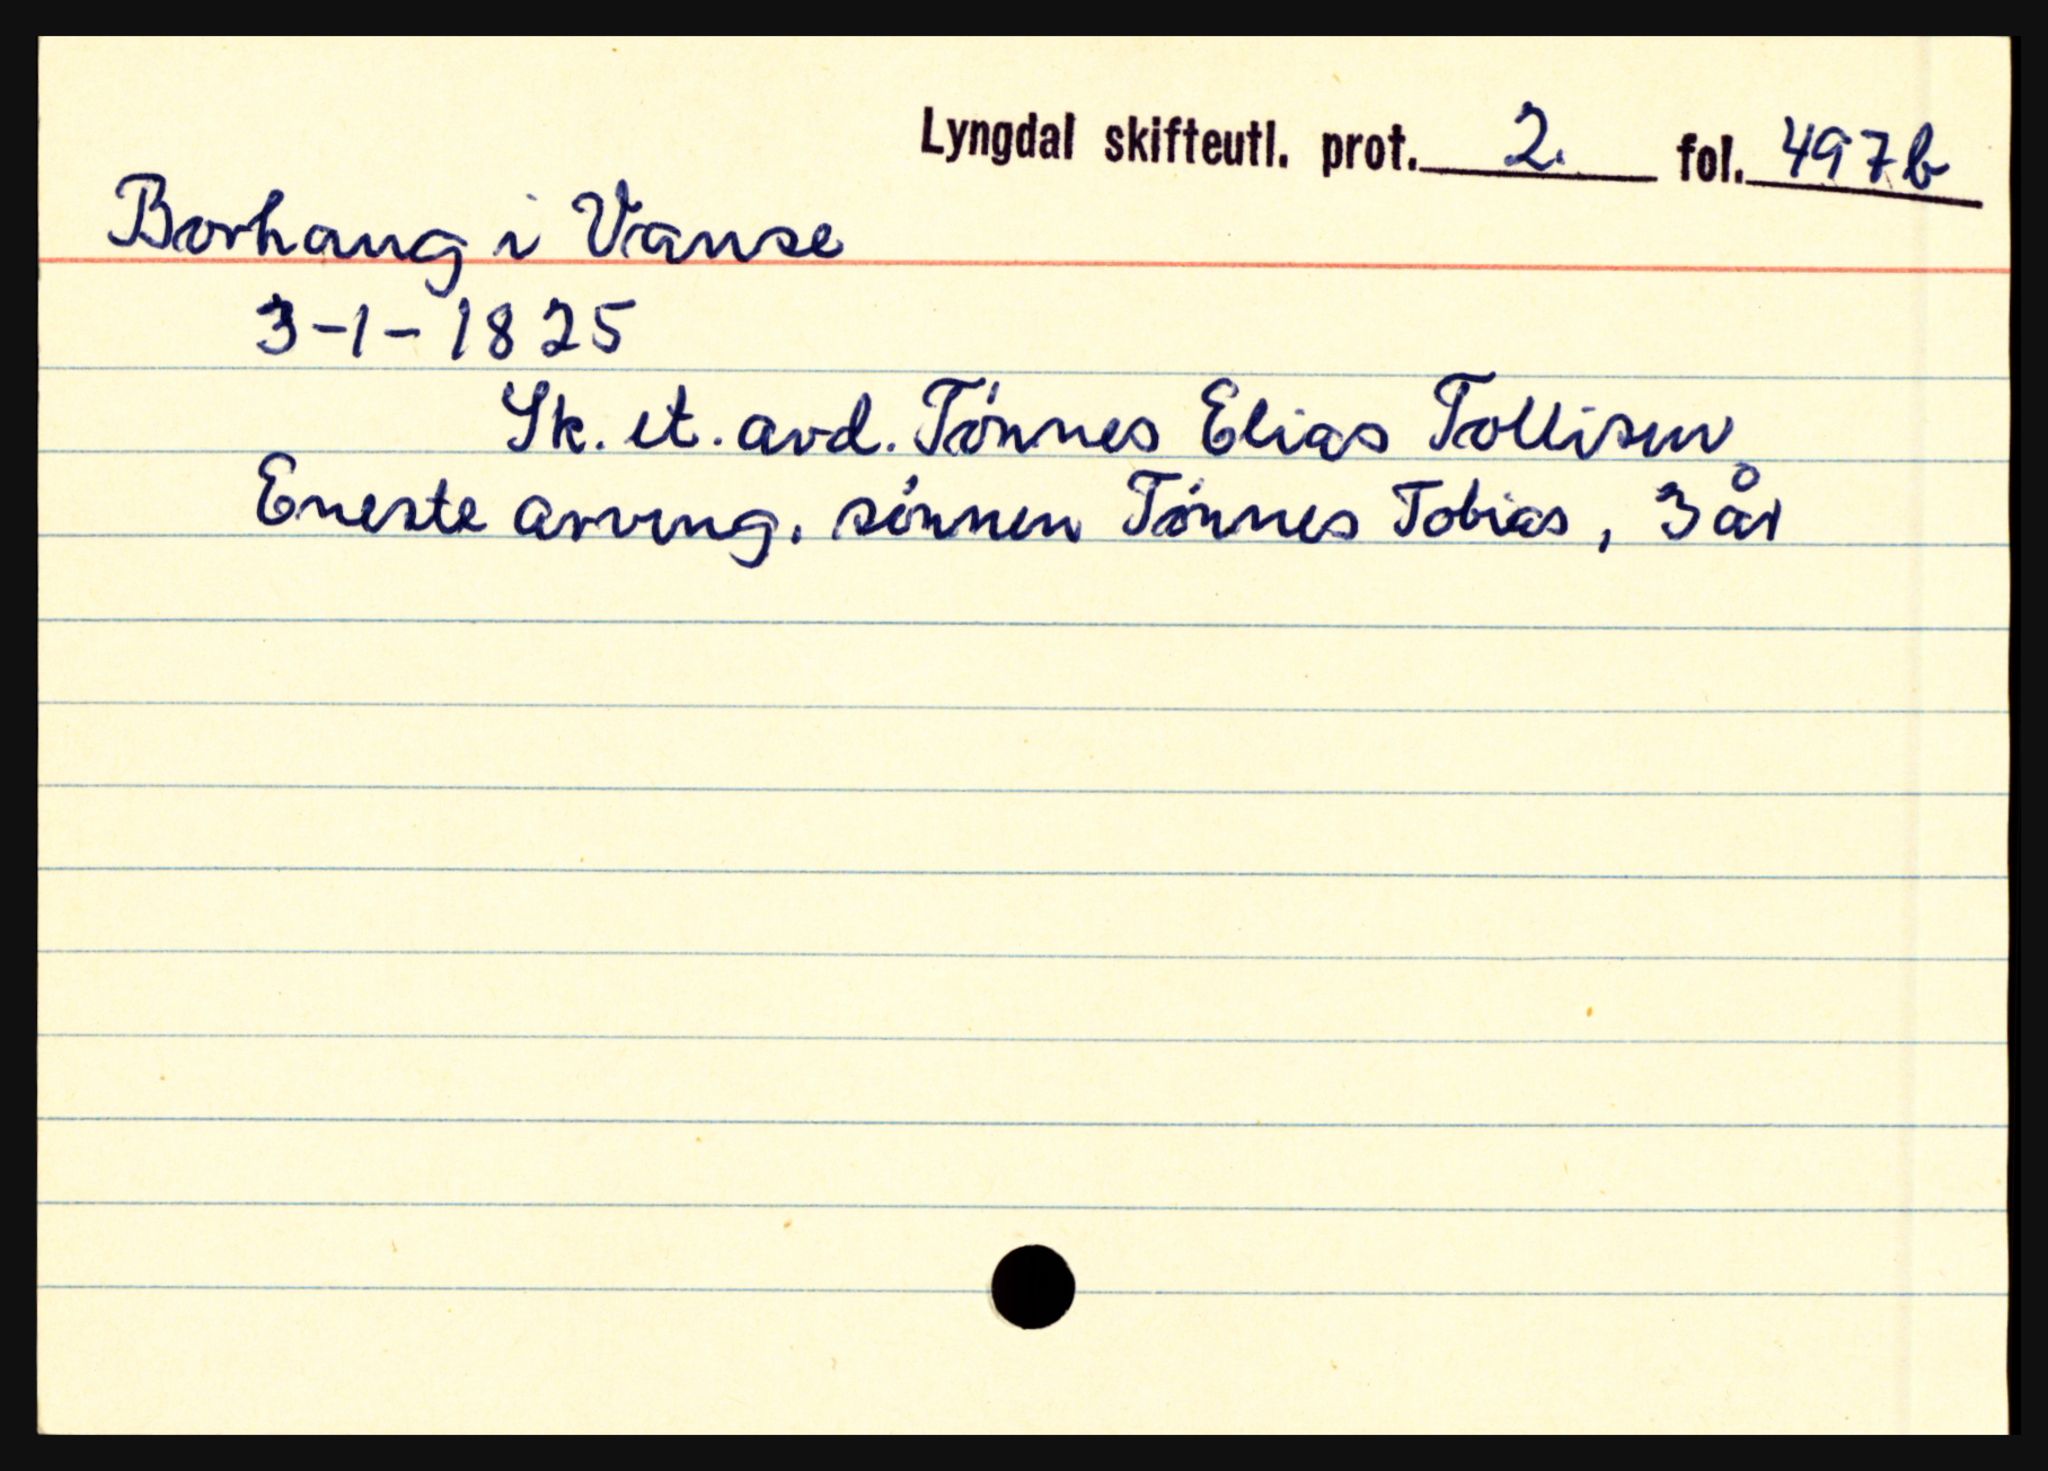 Lyngdal skifteutl. prot. 2. fol. 497b
Borhaug i Vanse
3-1-1825
Sk. et. avd. Tönnes Elias Tollisen
Eneste arving. sönnen Tönnes Tobias, 3 år